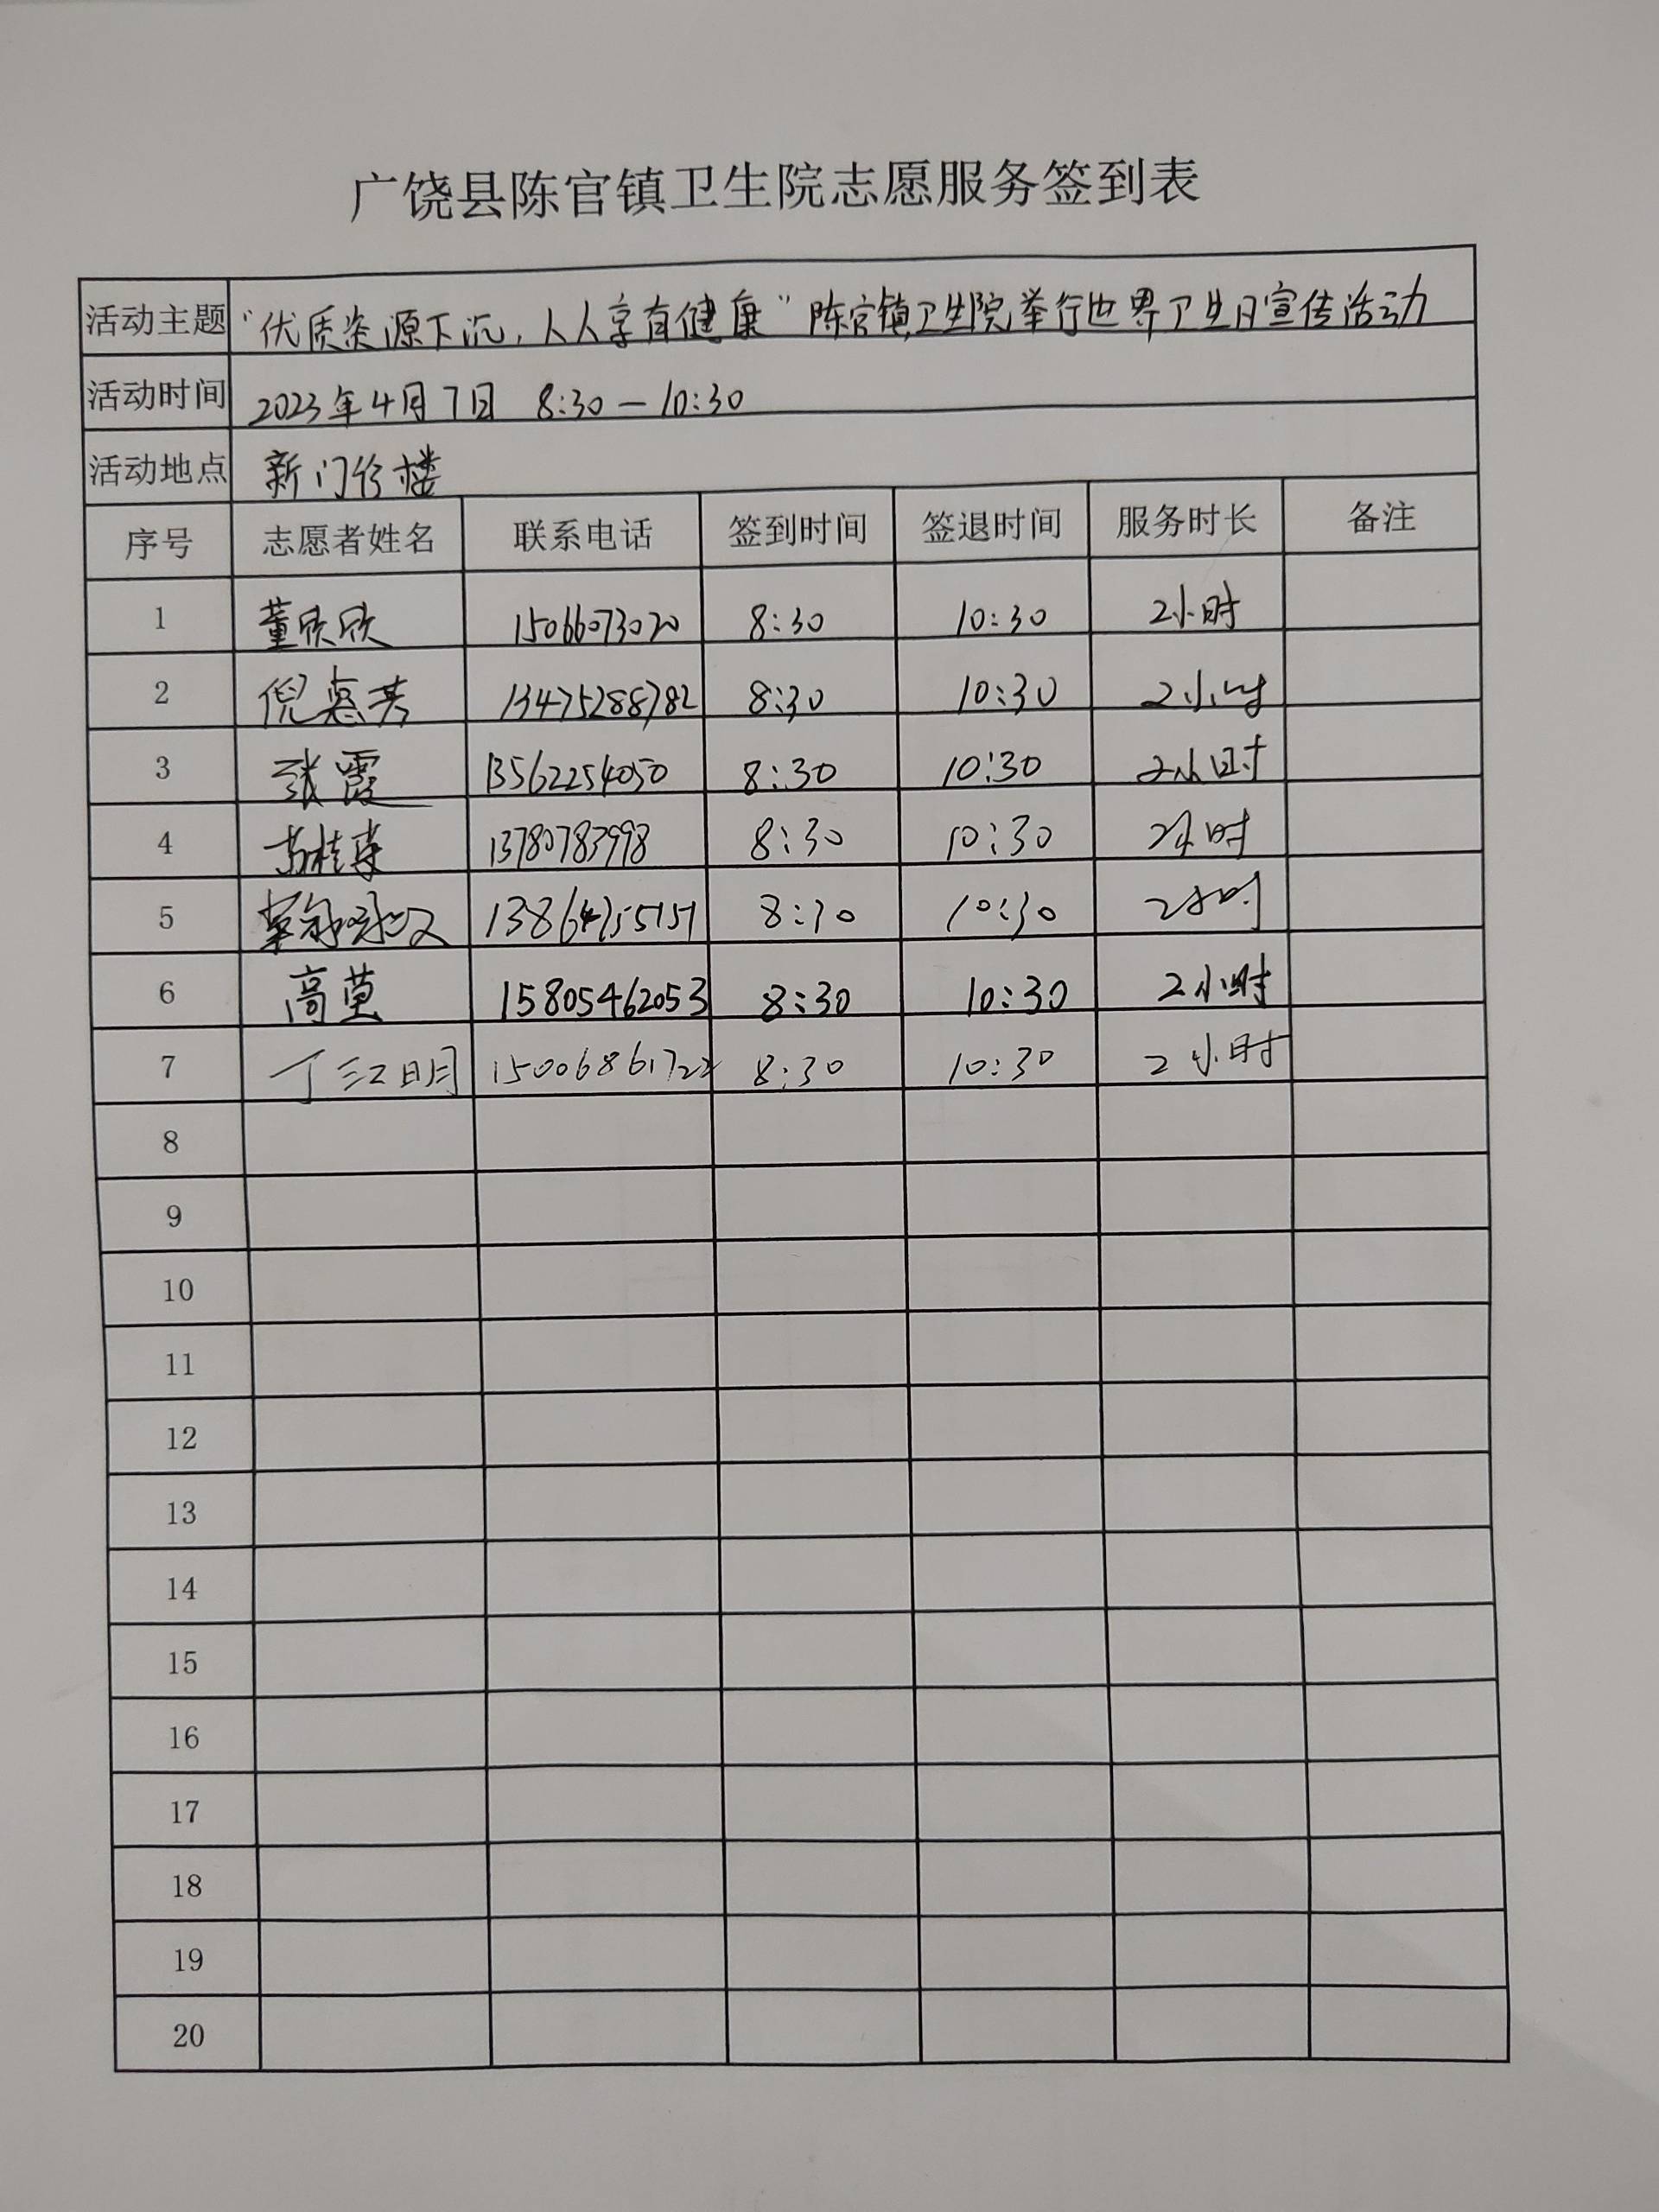 广饶县陈官镇卫生院志愿服务签到表
活动主题 "优质资源下沉，人人享有健康"陈官镇卫生院举行世界卫生日宣传活动
活动时间 2023年4月7日 8:30—10:30
活动地点 新门诊楼
序号 志愿者姓名 联系电话 签到时间 签退时间 服务时长 备注
1 董欣欣 15066073020 8:30 10:30 2小时
2 倪惠芳 13475288782 8:30 10:30 2小时
3 张霞 13562254050 8:30 10:30 2小时
4 13780783998 8:30 10:30 2小时
5 8:30 10:30 2小时
6 高英 15805462053 8:30 10:30 2小时
7 丁红明 15006861722 8:30 10:30 2小时
8
9
10
11
12
13
14
15
16
17
18
19
20